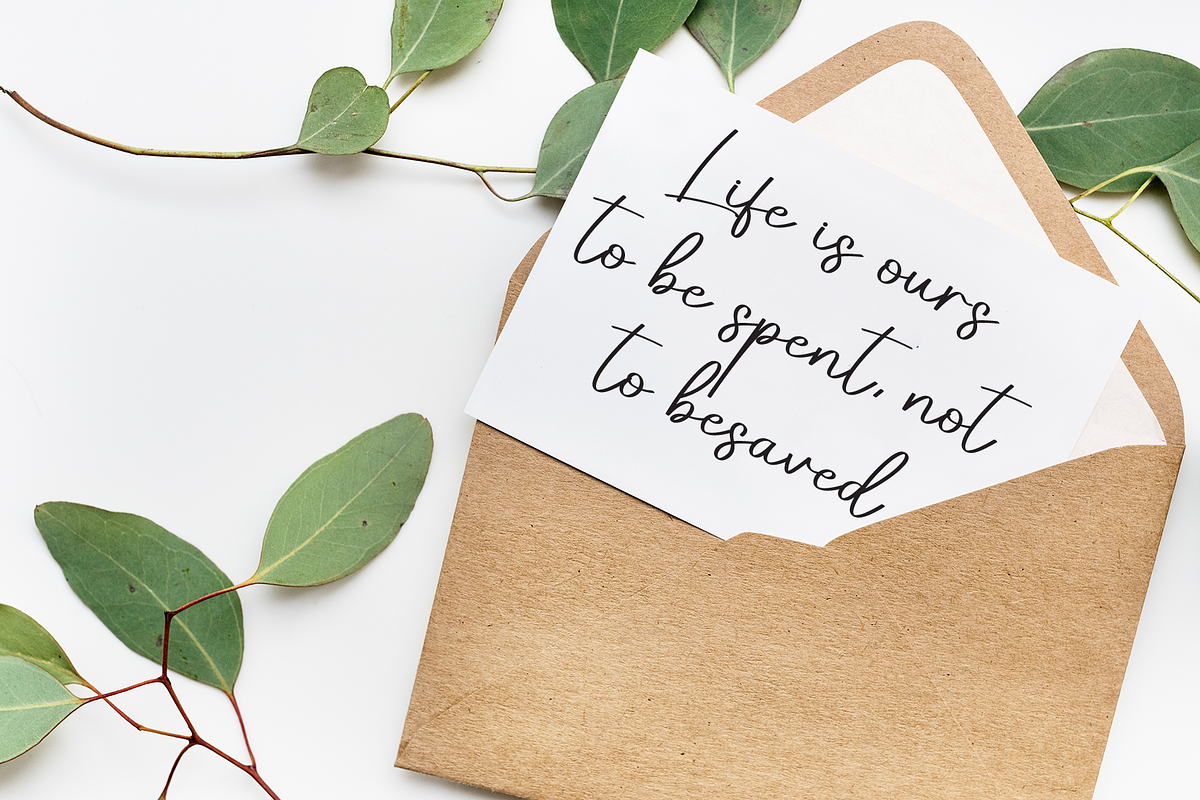 Life is ours
to be spent, not
to besaved